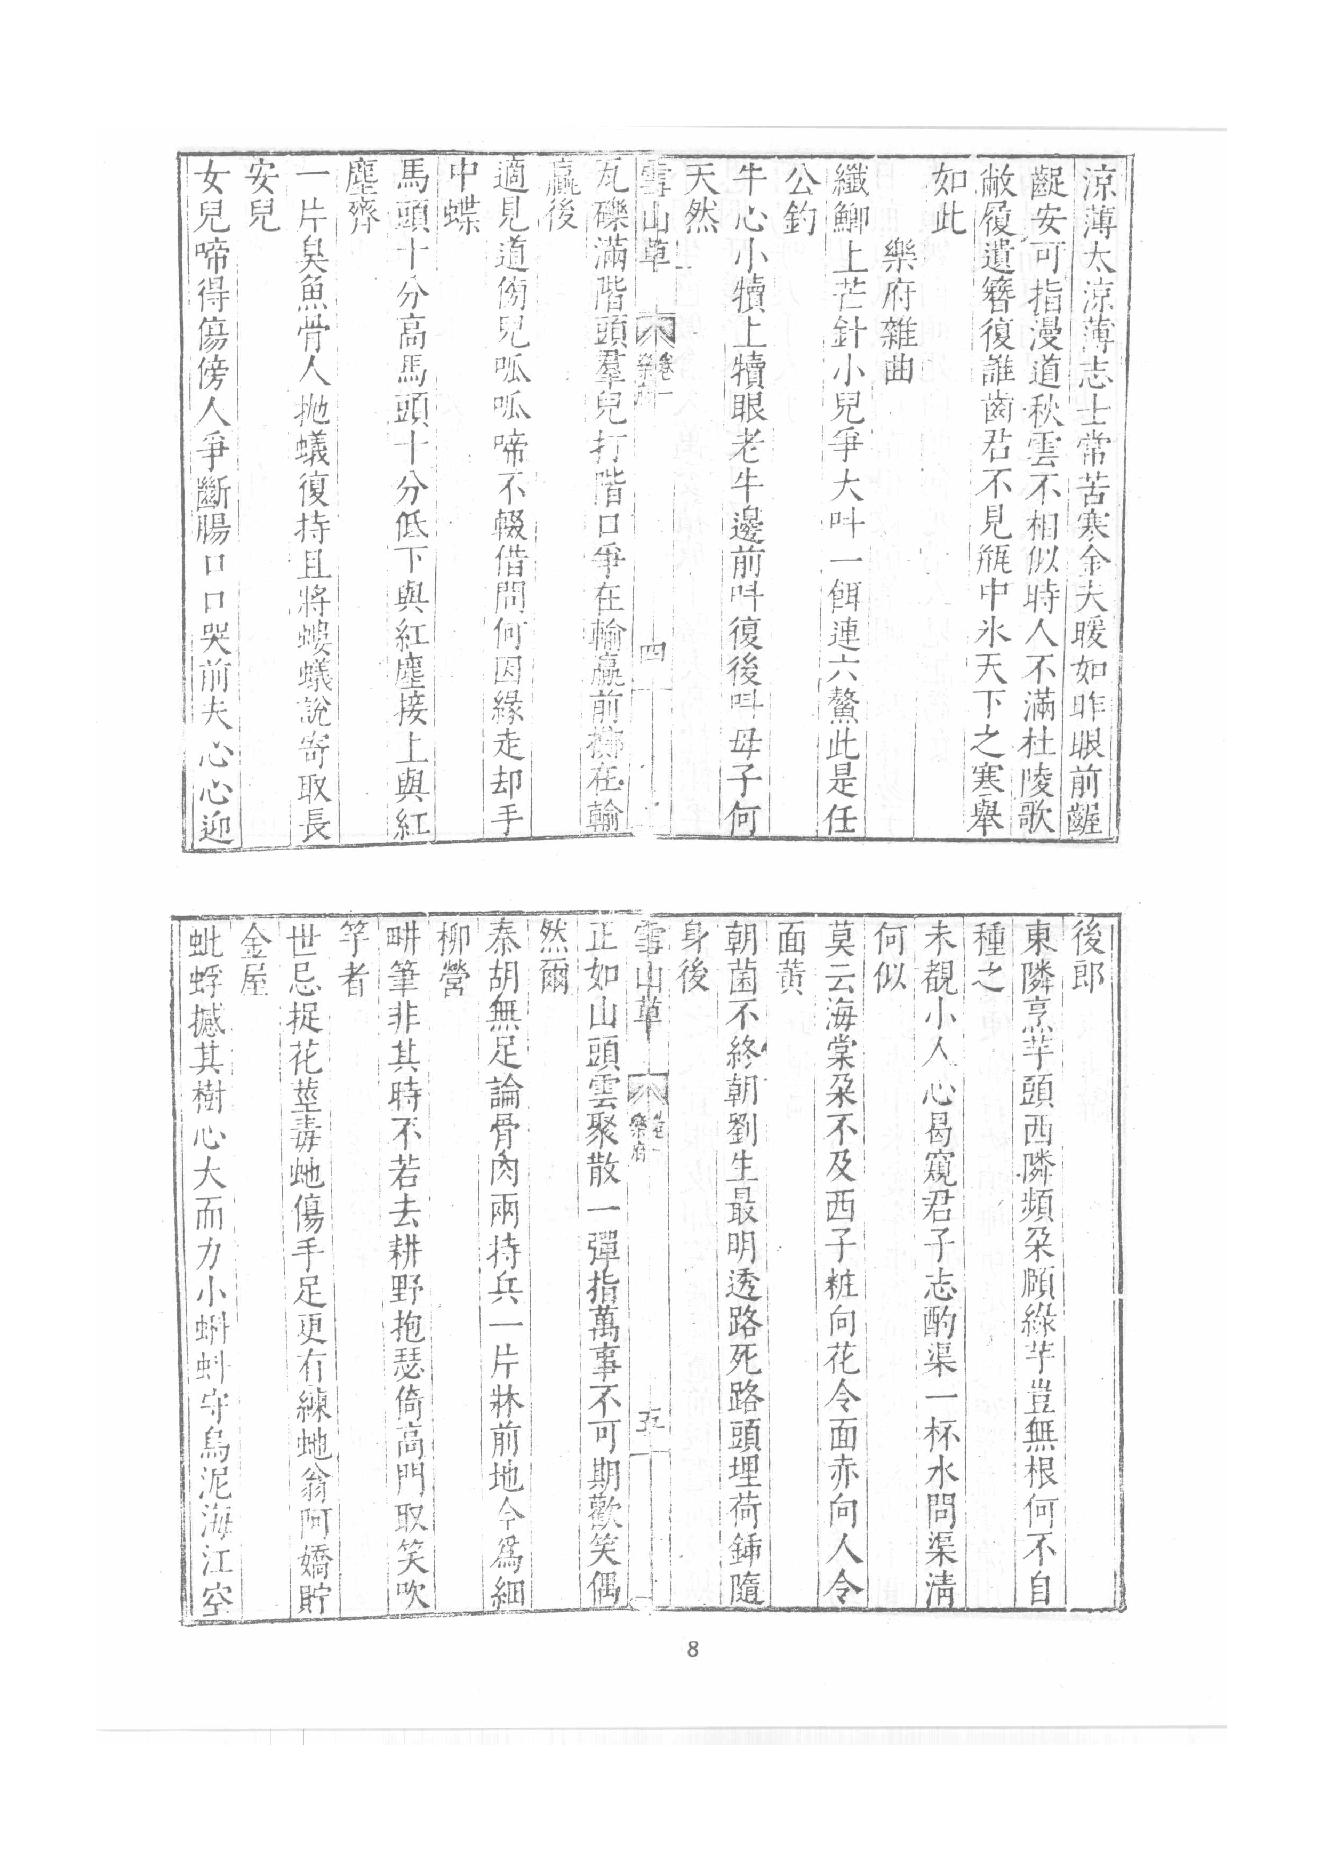 涼薄太涼薄志士常苦寒金夫暖如昨眼前齷
齪安可指漫道秋雲不相似時人不滿杜陵歌
敝履遺簪復誰齒君不見瓶中氷天下之寒舉
如此
樂府雜曲
纖鯽上芒針小兒爭大呌一餌連六鰲此是任
公釣
牛心小犢上犢眼老牛邊前呌復後呌母子何
天然
雪山草
卷一
樂府
四
瓦礫滿階頭羣兒打階口爭在輸贏前擲在輸
贏後
適見道傍兒呱呱啼不輟借問何因緣走却手
中蝶
馬頭十分高馬頭十分低下與紅塵接上與紅
塵齊
一片臭魚骨人抛蟻復持且將螻蟻說寄取長
安兒
女兒啼得傷傍人爭斷腸口口哭前夫心心迎
後郎
東隣烹芋頭西隣頻朶頤綠芋豈無根何不自
種之
未覩小人心曷窺君子志酌渠一杯水問渠淸
何似
莫云海棠朶不及西子粧向花令面赤向人令
面黃
朝菌不終朝劉生最明透路死路頭埋荷鍤隨
身後
雪山草
卷一
樂府
五
正如山頭雲聚散一彈指萬事不可期歡笑偶
然爾
秦胡無足論骨肉兩持兵一片牀前地今爲細
柳營
畊筆非其時不若去耕野抱瑟倚高門取笑吹
竽者
世忌捉花莖毒虵傷手足更有練虵翁阿嬌貯
金屋
蚍蜉撼其樹心大而力小蝌蚪守烏泥海江空
8